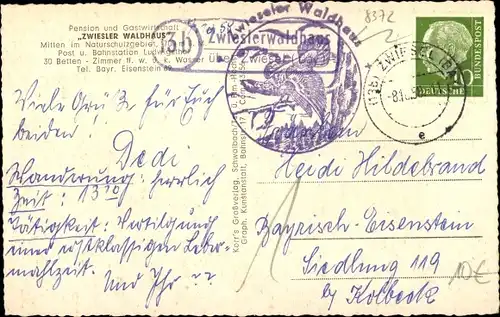 Pension und Gastwirtschaft
„ZWIESLER WALDHAUS"
Mitten im Naturschutzgebiet,
Post u. Bahnstation Ludwigsthal
30 Betten - Zimmer fl. w. & k. Wasser
Tel. Bayr. Eisenstein
13b
Zwieslerwaldhaus
über Zwiesel
Zwiesler Waldhaus
8372
(13b) ZWIESEL
-8.10.
e
DEUTSCHE BUNDESPOST
10
Viele Grüße für Euch
beiden! Dedi
Wanderung: herrlich
Zeit: 13²⁰
Tätigkeit: Vertilgung
eines erstklassigen Leber-
mahlzeit.
Und Ihr ??
Korr's Großverlag, Schwalbach
Graph. Kunstanstalt, Bahnstr. 17
Fräulein
Heidi Hildebrand
Bayrisch-Eisenstein
Siedlung 119
by Kolbeck
10€